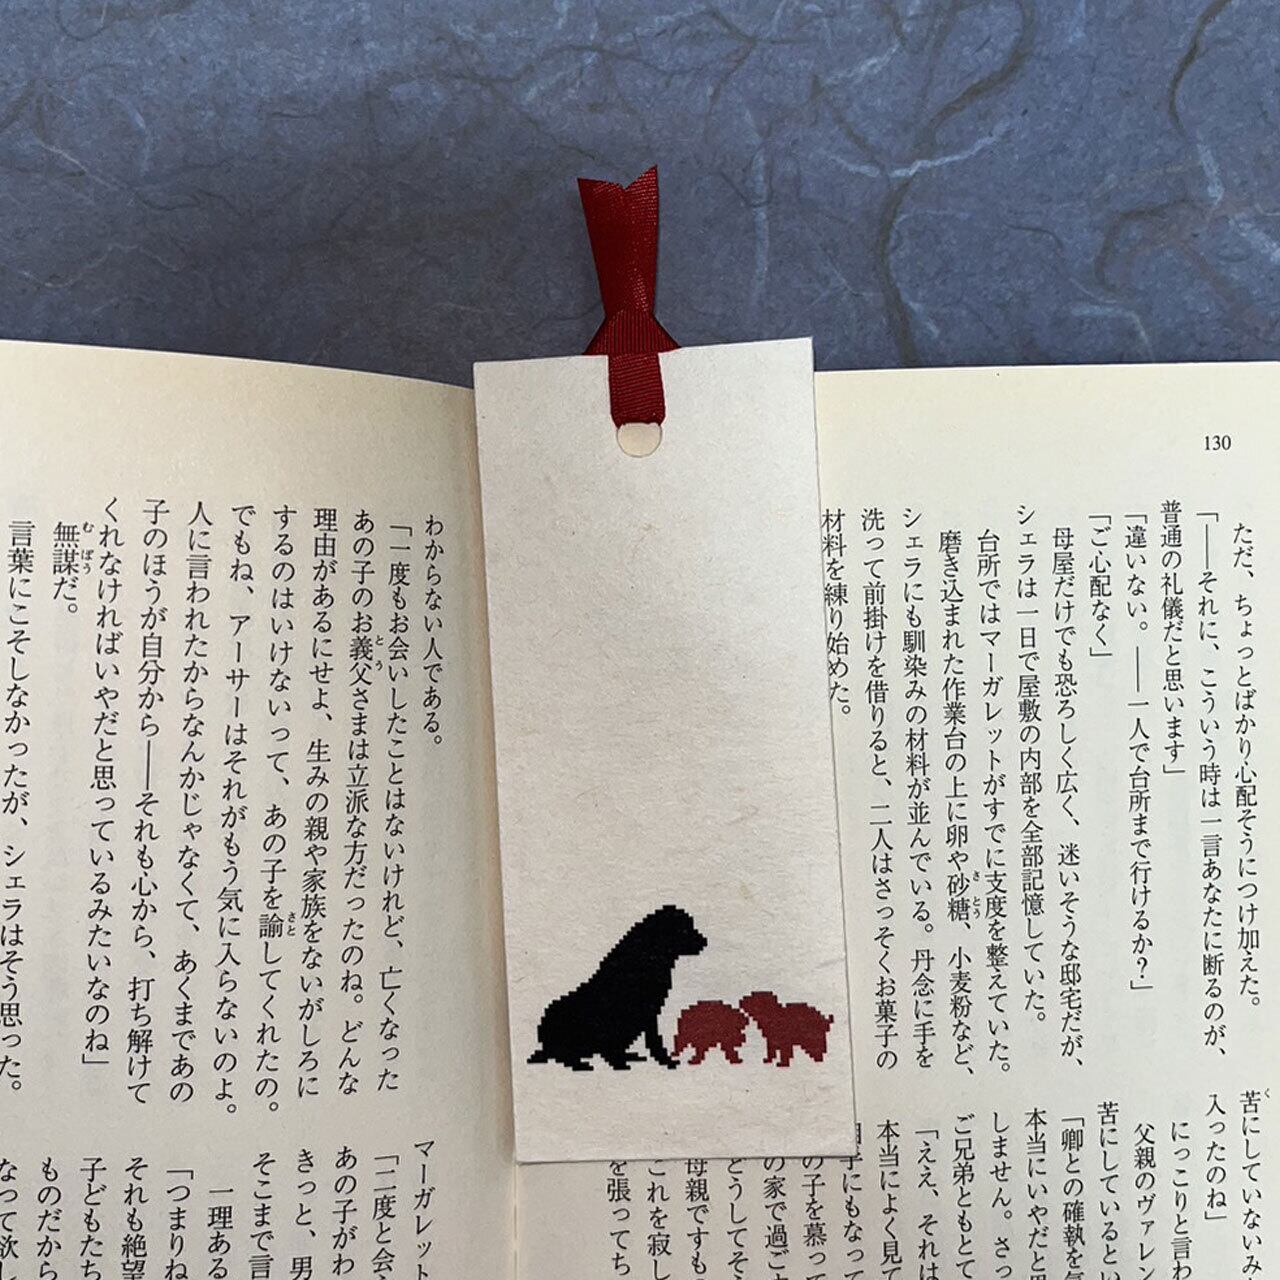 130
ただ、ちょっとばかり心配そうにつけ加えた。
「――それに、こういう時は一言あなたに断るのが、
普通の礼儀だと思います」
「違いない。――一人で台所まで行けるか?」
「ご心配なく」
母屋だけでも恐ろしく広く、迷いそうな邸宅だが、
シェラは一日で屋敷の内部を全部記憶していた。
台所ではマーガレットがすでに支度を整えていた。
磨き込まれた作業台の上に卵や砂糖、小麦粉など、
シェラにも馴染みの材料が並んでいる。丹念に手を
洗って前掛けを借りると、二人はさっそくお菓子の
材料を練り始めた。
苦にしていないみ
入ったのね」
にっこりと言わ
父親のヴァレン
苦にしているとい
「卿との確執を気
本当にいやだと思
しません。さっ
ご兄弟ともとて
「ええ、それは
本当によく見て
手にもなって
の子を慕って
の家で過ご
どうしてそ
母親ですもの
これを寂し
を張ってち
わからない人である。
「一度もお会いしたことはないけれど、亡くなった
あの子のお義父さまは立派な方だったのね。どんな
理由があるにせよ、生みの親や家族をないがしろに
するのはいけないって、あの子を諭してくれたの。
でもね、アーサーはそれがもう気に入らないのよ。
人に言われたからなんかじゃなくて、あくまであの
子のほうが自分から――それも心から、打ち解けて
くれなければいやだと思っているみたいなのね」
無謀だ。
言葉にこそしなかったが、シェラはそう思った。
マーガレット
「二度と会
あの子がわ
きっと、男
そこまで言
一理ある
「つまりね
それも絶望
子どもたち
ものだから
なって欲し